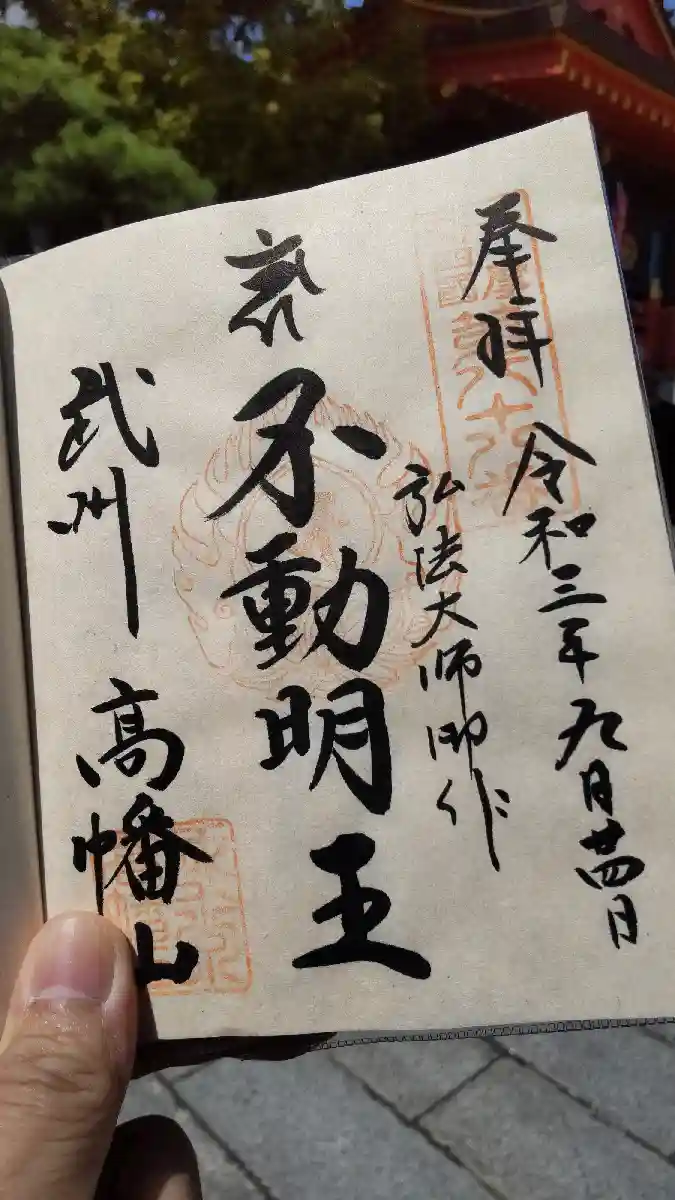 奉拝
令和三年九月廿四日
弘法大師御作
不動明王
武州
高幡山